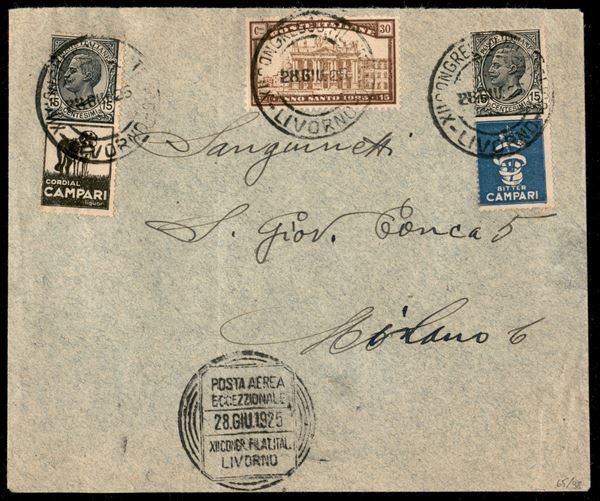 POSTE ITALIANE
15 15
CENTESIMI
CORDIAL
CAMPARI
liquor
28 GIU. 25
LIVORNO
30
ANNO SANTO 1925
15
XII CONGRESSO FIL.
28 GIU. 25
LIVORNO
15 15
CENTESIMI
BITTER
CAMPARI
XII CONGRE
28 GIU.
LIVORNO
Sanguinetti
S. Giov. Conca 5
Milano 6
POSTA AEREA
ECCEZZIONALE
28.GIU.1925
XII CONGR. FILAT. ITAL.
LIVORNO